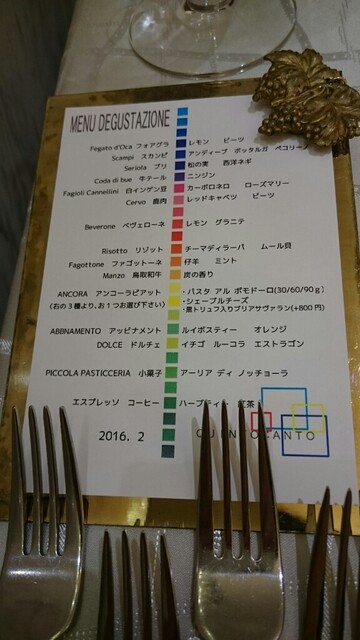 MENU DEGUSTAZIONE
Fegato d'Oca フォアグラ レモン ビーツ
Scampi スカンピ アンディーブ ボッタルガ ペコリーノ
Seriola ブリ 松の実 西洋ネギ
Coda di bue 牛テール ニンジン
Fagioli Cannellini 白インゲン豆 カーボロネロ ローズマリー
Cervo 鹿肉 レッドキャベツ ビーツ
Beverone ベヴェローネ レモン グラニテ
Risotto リゾット チーマディラーパ ムール貝
Fagottone ファゴットーネ 仔羊 ミント
Manzo 鳥取和牛 炭の香り
ANCORA アンコーラピアット ・パスタ アル ポモドーロ(30/60/90g)
(右の3種より、お1つお選び下さい) ・シェーブルチーズ
・黒トリュフ入りブリアサヴァラン(+800円)
ABBINAMENTO アッビナメント ルイボスティー オレンジ
DOLCE ドルチェ イチゴ ルーコラ エストラゴン
PICCOLA PASTICCERIA 小菓子 アーリア ディ ノッチョーラ
エスプレッソ コーヒー ハーブティー 紅茶
2016. 2
QUINTOCANTO